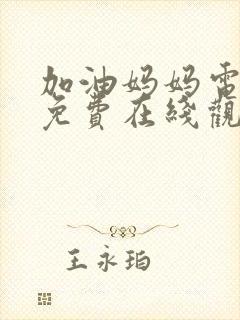 加油妈妈電
免費在綫觀
王永珀